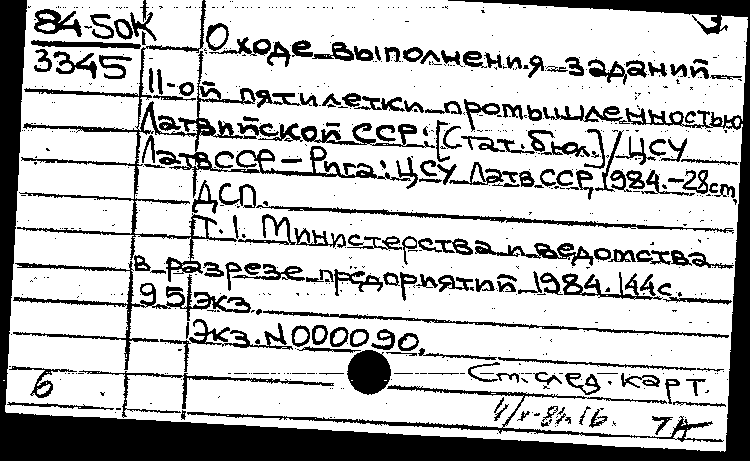 84-50к
3345
О ходе выполнения заданий
11-ой пятилетки промышленностью
Латвийской ССР: [Стат. бюл.] / ЦСУ
ЛатвССР. – Рига: ЦСУ ЛатвССР, 1984. – 28cm
ДСП.
Т. 1. Министерства и ведомства
в разрезе предприятий 1984. 144с.
95 экз.
Экз. N000090.
См. след. карт.
6
ТА